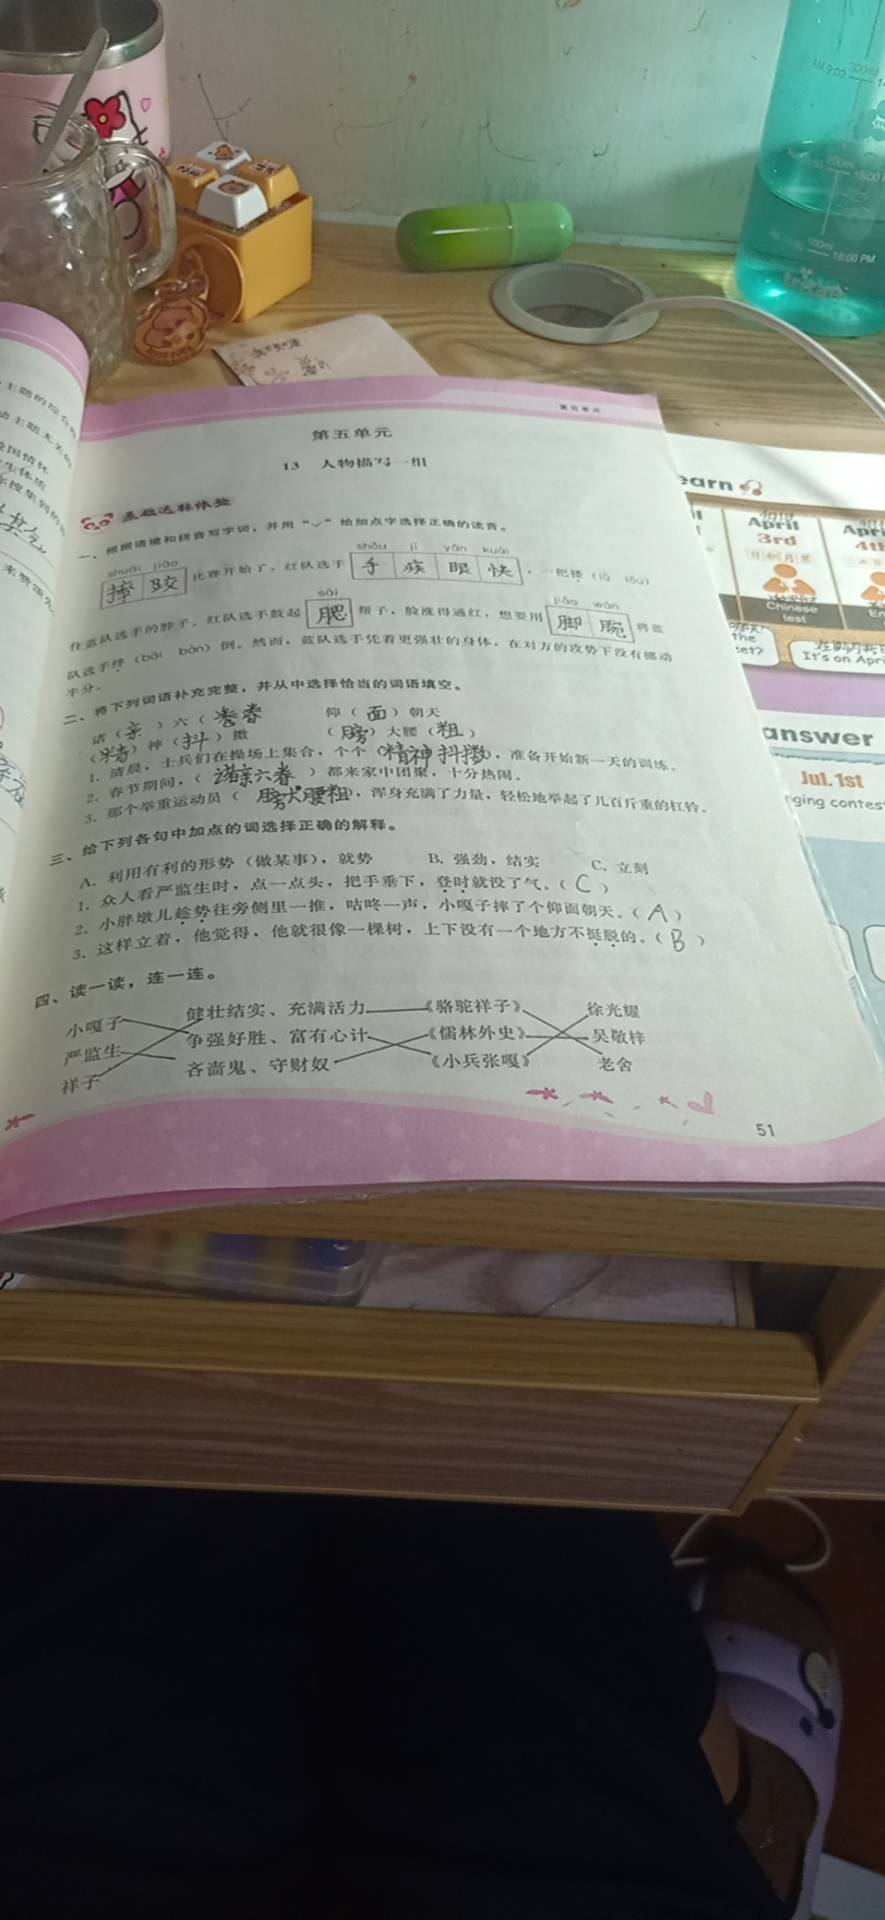 第五单元
第五单元
13 人物描写一组
基础达标体验
一、根据语境和拼音写字词，并用“✓”给加点字选择正确的读音。
shuāi jiāo
shǒu jí yǎn kuài
摔跤比赛开始了，红队选手手疾眼快，一把搂（lǒu
住蓝队选手的脖子，红队选手鼓起腮帮子，脸涨得通红，想要用脚腕将蓝
sāi
jiǎo wàn
队选手绊（bàn）倒。然而，蓝队选手凭着更强壮的身体，在对方的攻势下没有挪动
半分。
二、将下列词语补充完整，并从中选择恰当的词语填空。
诸（亲）六（眷） 仰（面）朝天
（精）神（抖）擞 （膀）大腰（粗）
1. 清晨，士兵们在操场上集合，个个（精神抖擞），准备开始新一天的训练。
2. 春节期间，（诸亲六眷）都来家中团聚，十分热闹。
3. 那个举重运动员（膀大腰粗），浑身充满了力量，轻松地举起了几百斤重的杠铃。
三、给下列各句中加点的词选择正确的解释。
A. 利用有利的形势（做某事），就势 B. 强劲，结实 C. 立刻
1. 众人看严监生时，点一点头，把手垂下，登时就没了气。（C）
2. 小胖墩儿趁势往旁侧里一推，咕咚一声，小嘎子摔了个仰面朝天。（A）
3. 这样立着，他觉得，他就很像一棵树，上下没有一个地方不挺脱的。（B）
四、读一读，连一连。
小嘎子 健壮结实、充满活力 《骆驼祥子》 徐光耀
严监生 争强好胜、富有心计 《儒林外史》 吴敬梓
祥子 吝啬鬼、守财奴 《小兵张嘎》 老舍
51
earn
April
3rd
Chinese
test
the
It's on Apri
answer
Jul. 1st
ging contes
300ml
200ml
100ml
18:00 PM